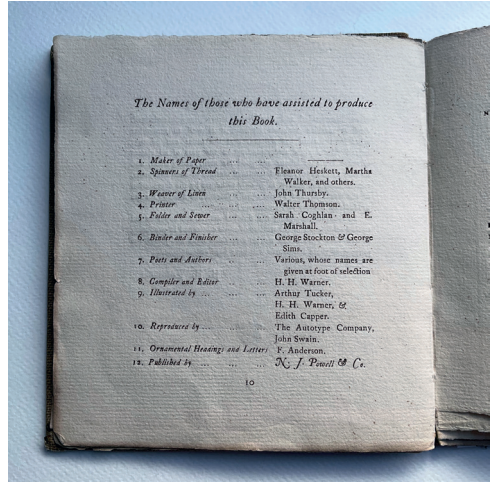 The Names of those who have assisted to produce
this Book.
1. Maker of Paper ... ...
2. Spinners of Thread ... ... Eleanor Heskett, Martha
Walker, and others.
3. Weaver of Linen ... ... John Thursby.
4. Printer ... ... ... Walter Thomson.
5. Folder and Sewer ... ... Sarah Coghlan and E.
Marshall.
6. Binder and Finisher ... ... George Stockton & George
Sims.
7. Poets and Authors ... ... Various, whose names are
given at foot of selection
8. Compiler and Editor ... ... H. H. Warner.
9. Illustrated by ... ... ... Arthur Tucker,
H. H. Warner, &
Edith Capper.
10. Reproduced by ... ... ... The Autotype Company,
John Swain.
11. Ornamental Headings and Letters F. Anderson.
12. Published by ... ... ... N. J. Powell & Co.
10